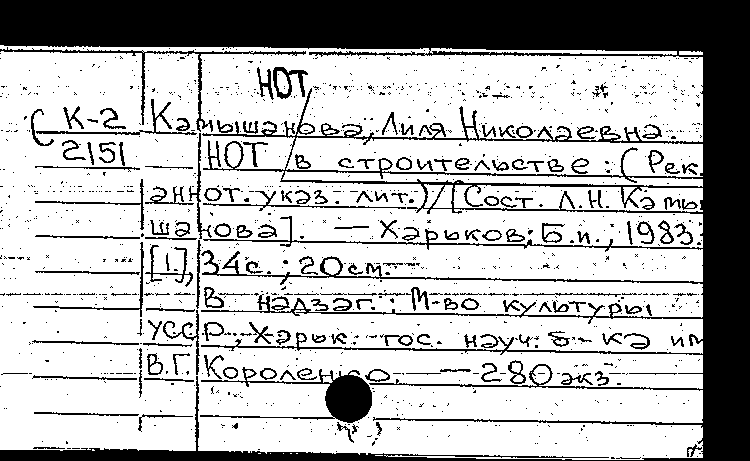 НОТ
С К-2 Камышанова, Лиля Николаевна.
2151 НОТ в строительстве : (Рек.
аннот. указ. лит.)/[Сост. Л.Н. Камы
шанова]. — Харьков: Б.и., 1983.
[1], 34с. ; 20см.—
В надзаг.: М-во культуры
УССР, Харьк. гос. науч. б-ка им
В.Г. Короленко. — 280 экз.